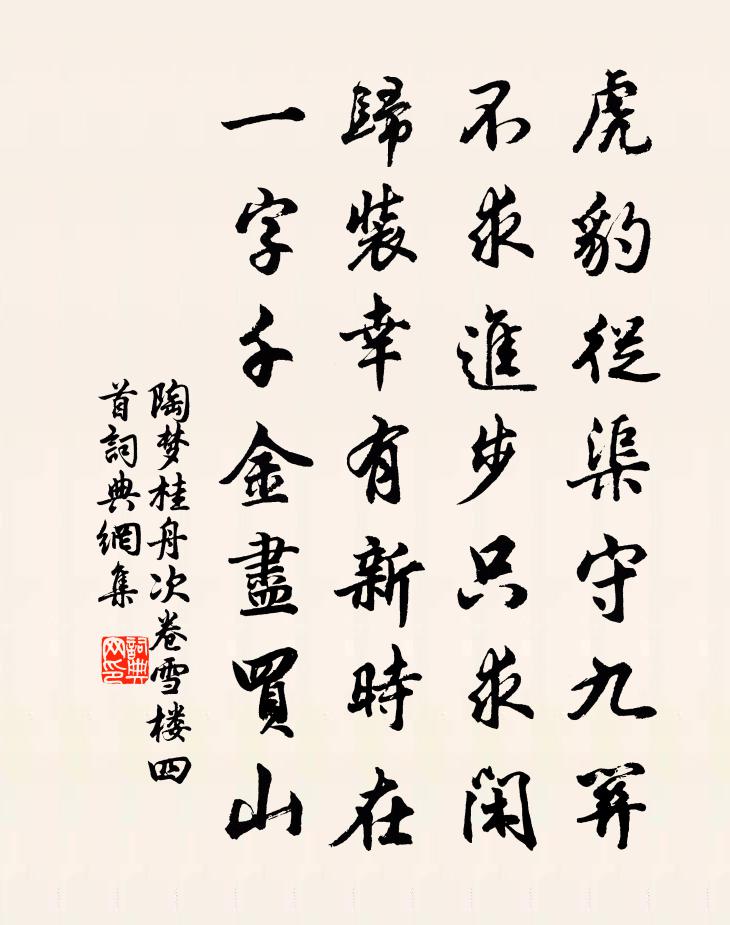 虎豹從渠守九關
不求進步只求閑
歸裝幸有新時在
一字千金盡買山
陶梦桂舟次卷雪楼四
首詞典網集
詞典
网印